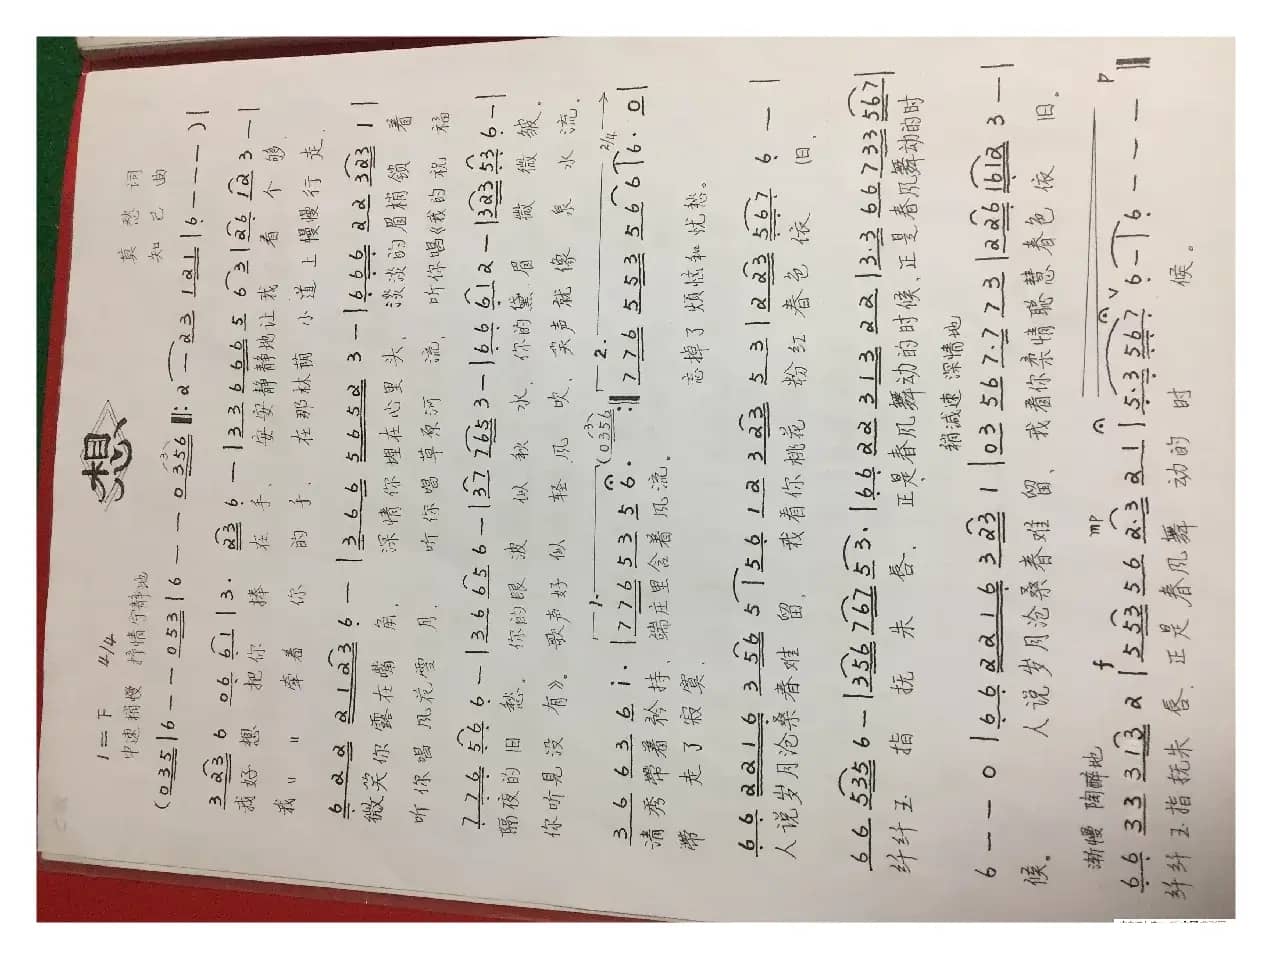 想
1=F 4/4
中速稍慢 抒情宁静地
真愁 词
知己 曲
(0 3 5 | 6 - - 0 5 3 | 6 - - - 0 3 5 6 ‖: 2 - 2 3 1 2 1 | 6 - - - ) |
3 2 3 6 0 6 6 1 | 3 · 2 3 6 - | 3 3 6 6 6 6 5 6 3 | 2 6 1 2 3 - |
我好想 把你 捧 在手、 安安静静地让我看个够.
我〃〃 牵着 你 的手、 在那林荫小道上慢慢行走.
6 2 2 2 1 2 3 6 - | 3 6 6 5 6 5 2 3 - | 6 6 6 2 2 3 2 3 1 |
微笑你露在嘴角. 深情你埋在心里头. 淡淡的眉梢锁着
听你唱风花雪月. 听你唱草原河流. 听你唱《我的祝福
7 7 6 5 6 6 - | 3 6 6 5 6 - | 3 7 7 6 5 3 - | 6 6 6 1 2 - | 3 2 3 5 3 6 - |
隔夜的旧愁. 你的眼波似秋水. 你的黛眉微微皱.
你听见没有》。歌声好似轻风吹、笑声就像泉水流.
3 6 6 3 6 i · | 1. 7 7 6 5 3 5 6 · (0 3 5 6 :‖ 2. 7 7 6 5 5 3 5 6 6 | 2/4 6 · 0 |
清秀带着矜持、端庄里含着风流。
带走了寂寞. 忘掉了烦恼和忧愁。
6 6 2 2 2 1 6 3 5 6 5 | 5 6 1 2 3 2 3 5 3 | 2 2 3 5 6 7 6 - |
人说岁月沧桑春难留、我看你桃花粉红春色依旧.
6 6 5 3 5 6 - | 3 5 6 7 6 7 5 3 · | 6 6 2 2 3 1 3 2 2 | 3 · 3 6 6 7 3 3 5 6 7 |
纤纤玉指抚朱唇. 正是春风舞动的时候、正是春风舞动的时
稍减速 深情地
6 - - 0 | 6 6 2 2 2 1 6 3 2 3 1 | 0 3 5 6 7 · 7 7 3 | 2 2 6 1 6 1 2 3 - |
候。 人说岁月沧桑春难留、我看你柔情聪慧春色依旧。
渐慢 陶醉地 f mp p
6 6 3 3 3 1 3 2 | 5 5 3 5 5 6 2 · 3 2 1 | 5 · 3 5 6 7 6 - | 6 - - - ‖
纤纤玉指抚朱唇. 正是春风舞动的时候。